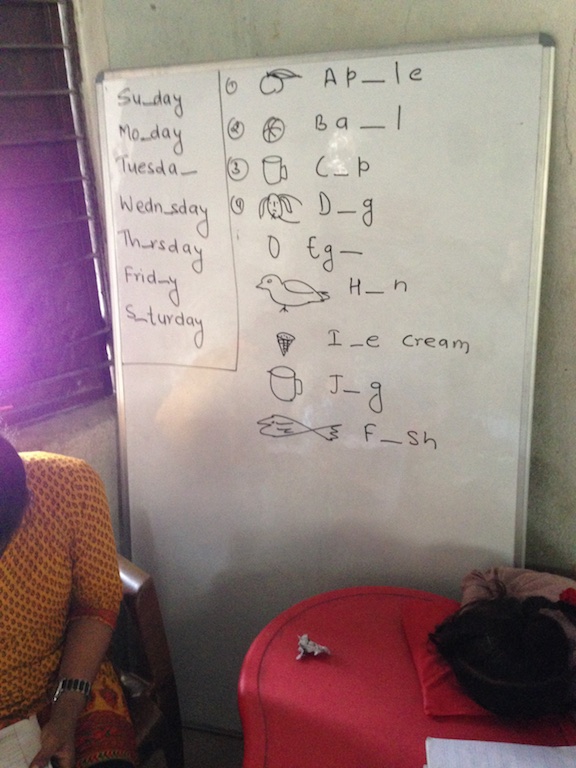 Su_day
Mo_day
Tuesda_
Wedn_sday
Th_rsday
Frid_y
S_turday
① Ap_le
② Ba_l
③ C_p
④ D_g
Eg_
H_n
I_e cream
J_g
F_sh